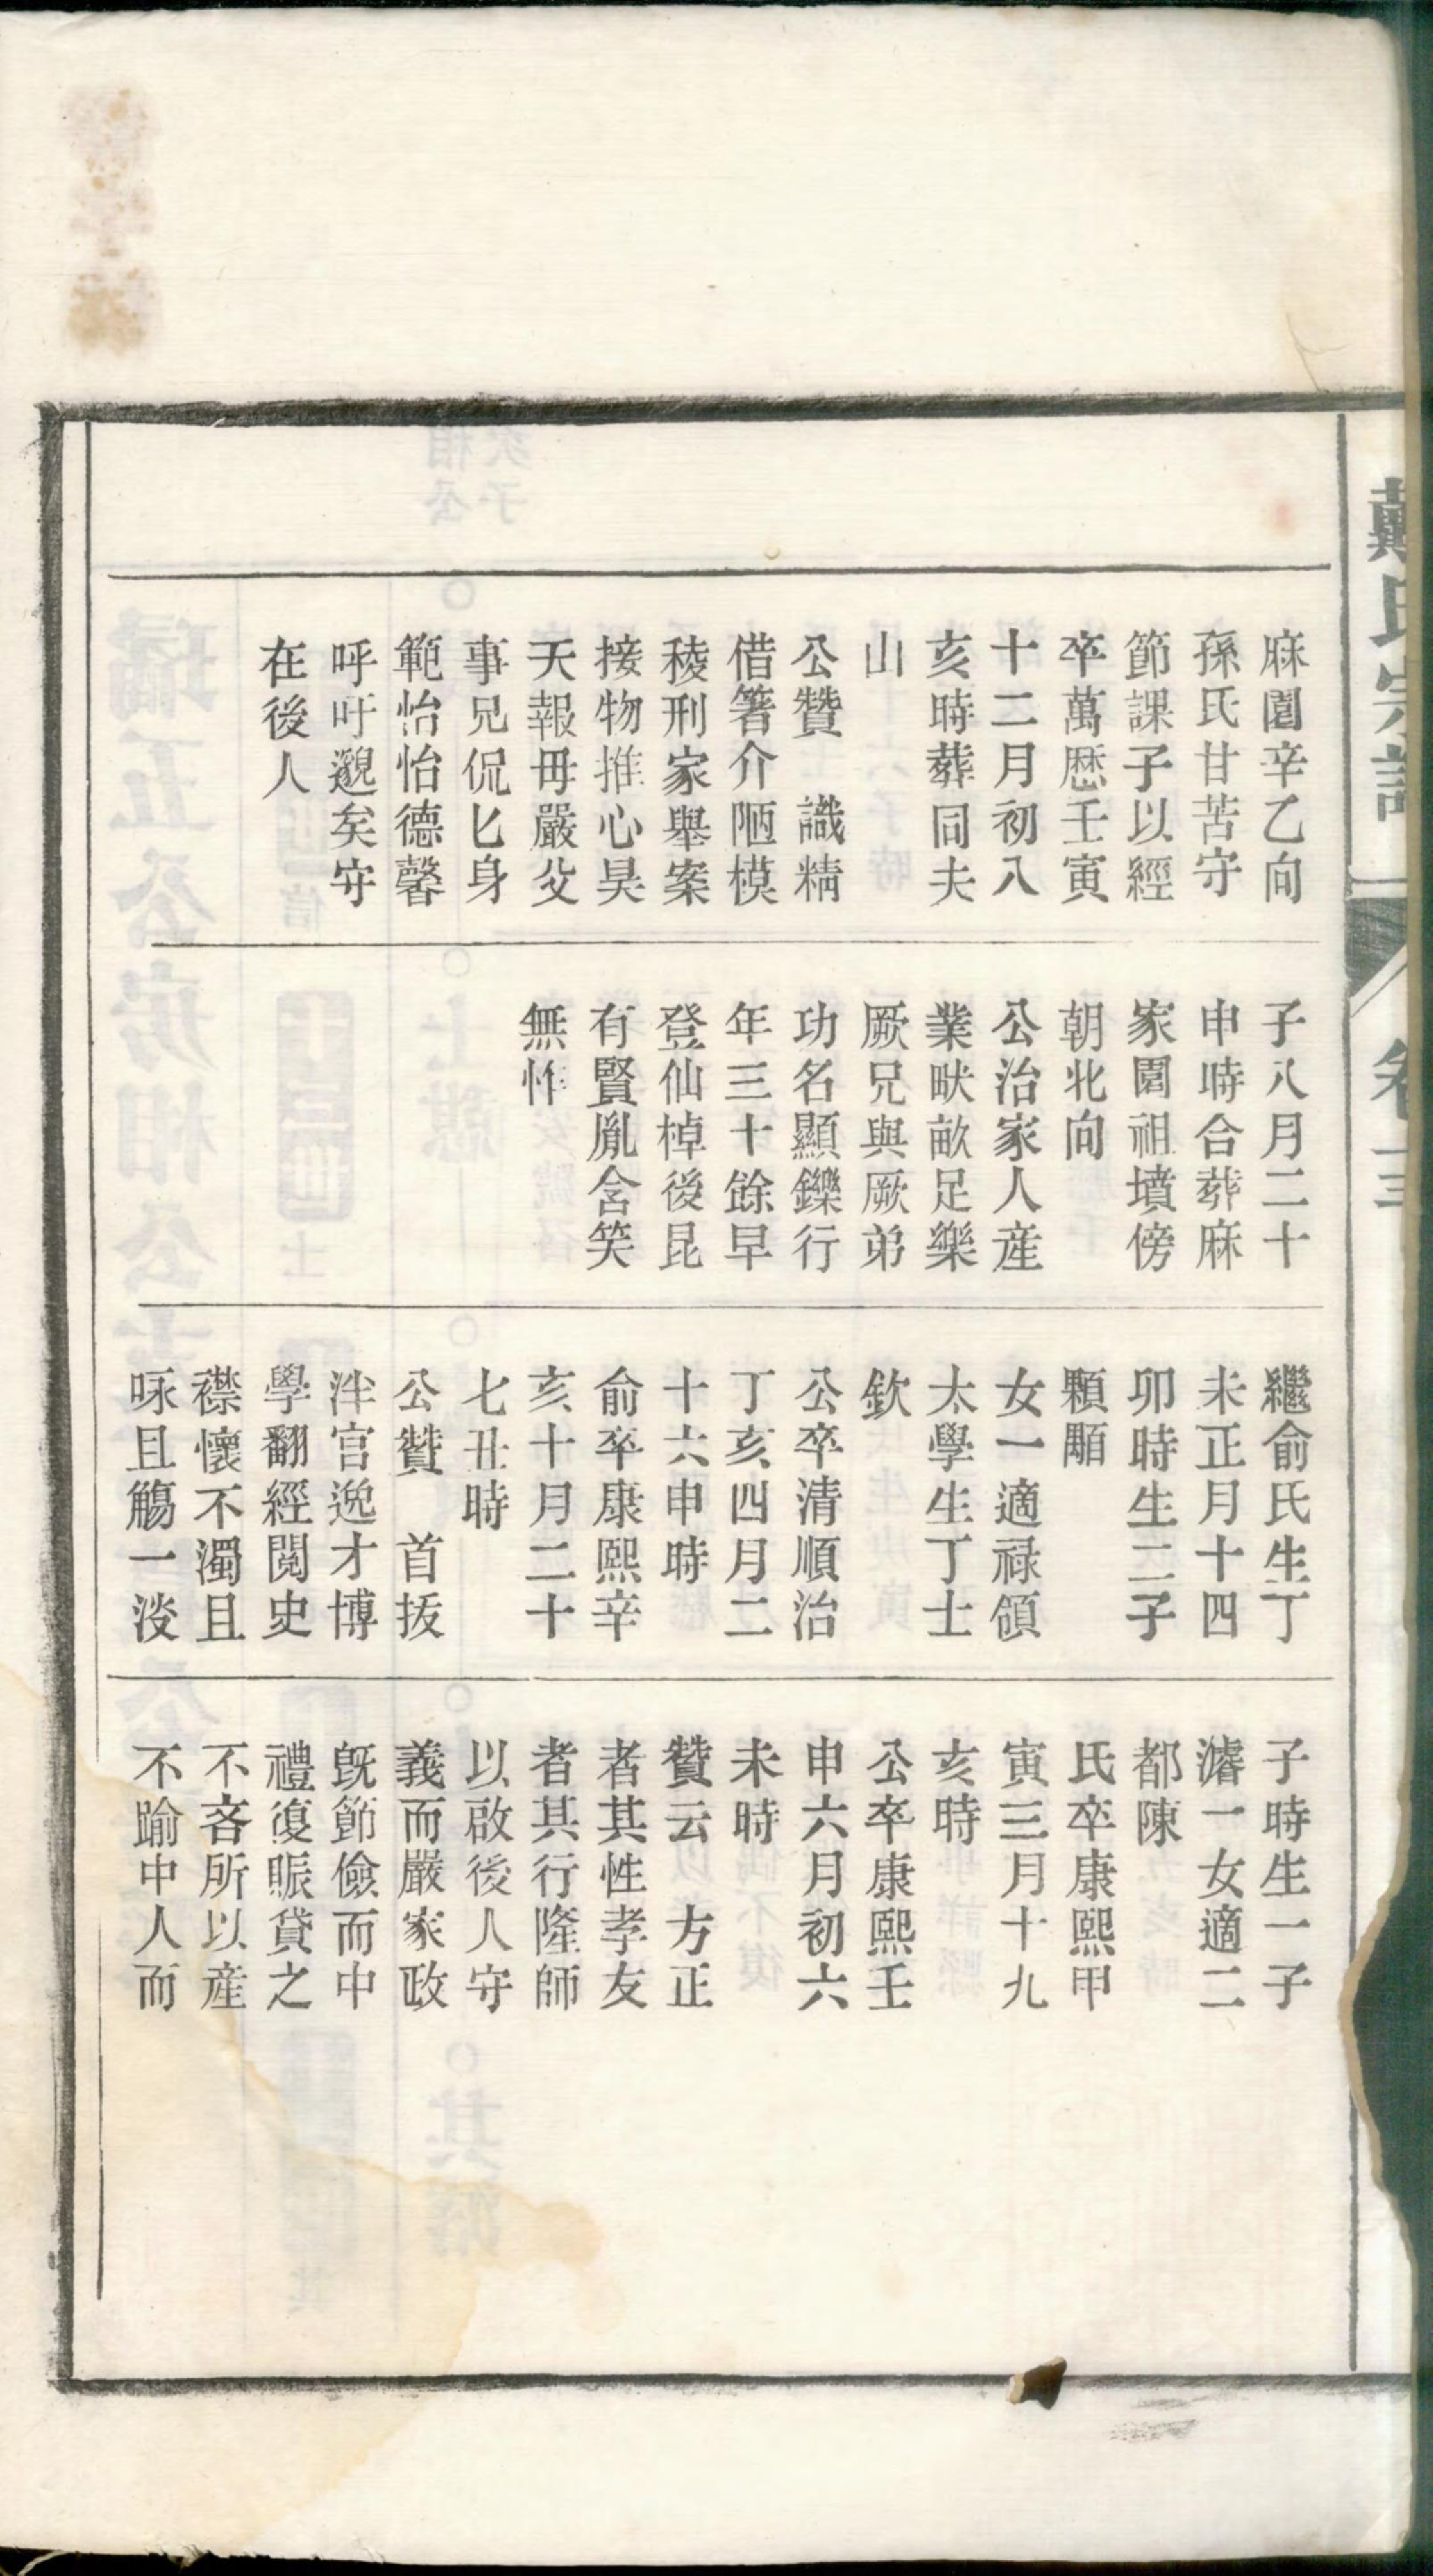 戴氏宗譜
卷三
麻園辛乙向
孫氏甘苦守
節課子以經
卒萬厯壬寅
十二月初八
亥時葬同夫
山
公贊　識精
借箸介陋模
稜刑家舉案
接物推心昊
天報毋嚴父
事兄侃匕身
範怡怡德馨
呼吁邈矣守
在後人
子八月二十
申時合葬麻
家園祖墳傍
朝北向
公治家人産
業畎畝足樂
厥兄與厥弟
功名顯鑠行
年三十餘早
登仙棹後昆
有賢胤含笑
無怍
繼俞氏生丁
未正月十四
卯時生二子
顆顒
女一適祿領
太學生丁士
欽
公卒清順治
丁亥四月二
十六申時
俞卒康熙辛
亥十月二十
七丑時
公贊　首拔
泮宮逸才博
學翻經閱史
襟懷不濁且
咏且觴一淡
子時生一子
濬一女適二
都陳
氏卒康熙甲
寅三月十九
亥時
公卒康熙壬
申六月初六
未時
贊云　方正
者其性孝友
者其行隆師
以啟後人守
義而嚴家政
旣節儉而中
禮復賑貸之
不吝所以産
不踰中人而